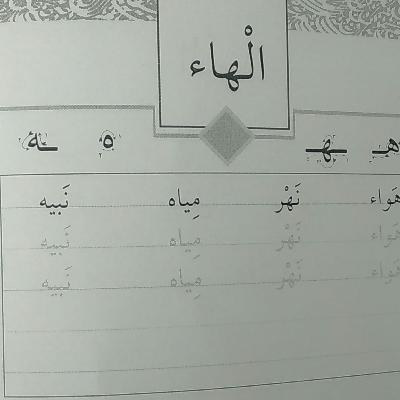 الْهاء
هـ ـهـ ه ـه
هَواء نَهْر مِياه نَبيه
هَواء نَهْر مِياه نَبيه
هَواء نَهْر مِياه نَبيه